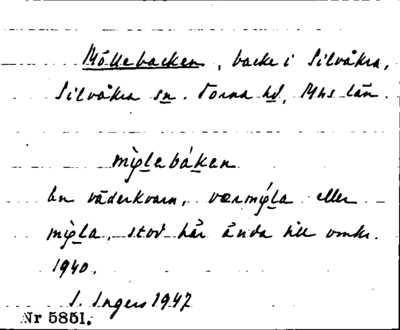 Möllebacken, backe i Silvåkra,
Silvåkra sn. Torna hd, Mhs län.
mỳlabákan
En väderkvarn, værmýla eller
mỳla, stod här ända till omkr.
1940.
I. Ingers 1947
Nr 5851.